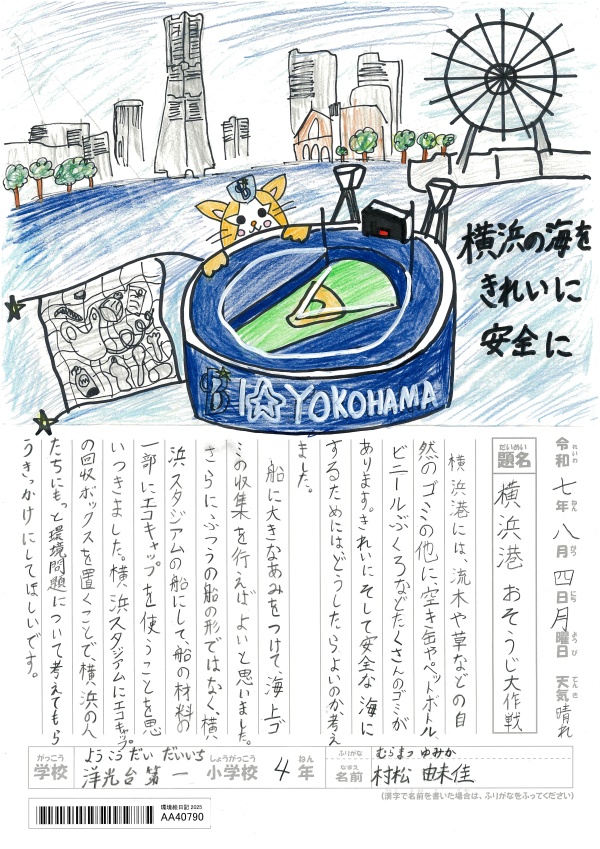 横浜の海を
きれいに
安全に
B
I☆YOKOHAMA
令和七年八月四日月曜日 天気 晴れ
れいわ ねん がつ にち ようび てんき
だいめい
題名 横浜港 おそうじ大作戦
横浜港には、流木や草などの自
然のゴミの他に、空き缶やペットボトル、
ビニールぶくろなどたくさんのゴミが
あります。きれいにそして安全な海に
するためには、どうしたらよいのか、考え
ました。
船に大きなあみをつけて、海上ゴ
ミの収集を行えばよいと思いました。
さらに、ふつうの船の形ではなく、横
浜スタジアムの船にして、船の材料の
一部にエコキャップを使うことを思
いつきました。横浜スタジアムにエコキャップ
の回収ボックスを置くことで横浜の人
たちにもっと環境問題について考えてもら
うきっかけにしてほしいです。
がっこう ようこうだい だいいち しょうがっこう ねん
学校 洋光台第一 小学校 4年
ふりがな むらまつ ゆみか
なまえ
名前 村松 由未佳
(漢字で名前を書いた場合は、ふりがなをふってください)
環境絵日記2025
AA40790